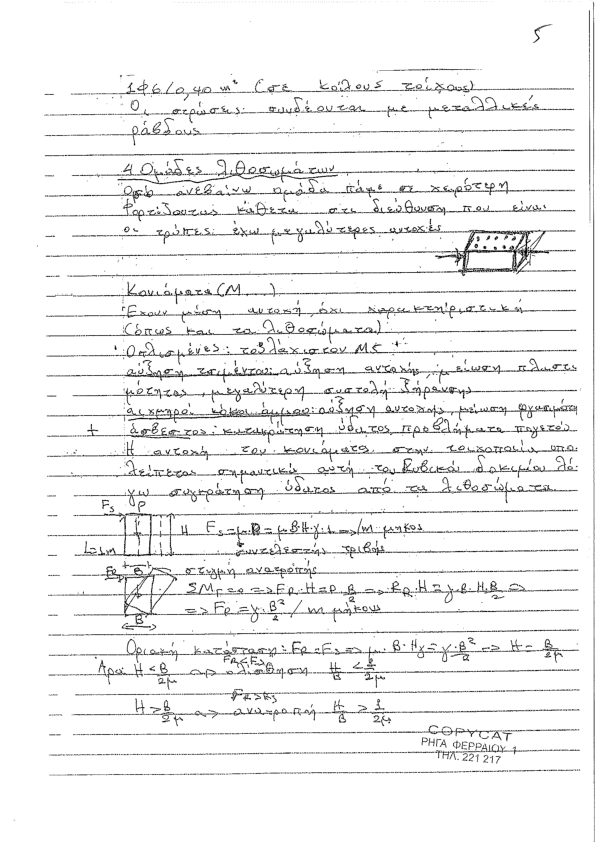 5
1Φ6/0,40 m² (σε κοίλους τοίχους)
Οι στρώσεις συνδέονται με μεταλλικές
ράβδους
4 Ομάδες λιθοσωμάτων
Όσο ανεβαίνω ομάδα πάμε σε χειρότερη
Φορτίζοντας κάθετα στη διεύθυνση που είναι
οι τρύπες έχω μεγαλύτερες αντοχές
Κονιάματα (Μ )
Έχουν μέση αντοχή, όχι χαρακτηριστική
(όπως και τα λιθοσώματα)
Οπλισμένες: τουλάχιστον Μ5 +
αύξηση τσιμέντου: αύξηση αντοχής, μείωση πλαστι
μότητας, μεγαλύτερη συστολή ξήρανσης
αιχμηροί κόκκοι άμμου: αύξηση αντοχής, μείωση
+ άσβεστος: κατακράτηση ύδατος προβλήματα παγετού
Η αντοχή του κονιάματος στην τοιχοποιία υπο
λείπεται σημαντικά αυτή του κυβικού δοκιμίου λό
γω συγκράτηση ύδατος από τα λιθοσώματα
Fs P
H Fs=μ·P=μ·B·H·γ·L => /m μήκος
L=1m συντελεστής τριβής
FR B στιγμή ανατροπής
ΣM =0 => FR·H=P·B/2 => FR·H=γ·B·H·B/2 =>
B => FR=γ·B²/2 /m μήκους
Οριακή κατάσταση: FR=Fs => μ·B·Hγ=γ·B²/2 => H=B/2μ
FR<Fs
Άρα H<B/2μ => ολίσθηση H/B<1/2μ
FR>Fs
H>B/2μ => ανατροπή H/B>1/2μ
COPYCAT
ΡΗΓΑ ΦΕΡΡΑΙΟΥ 1
ΤΗΛ. 221 217